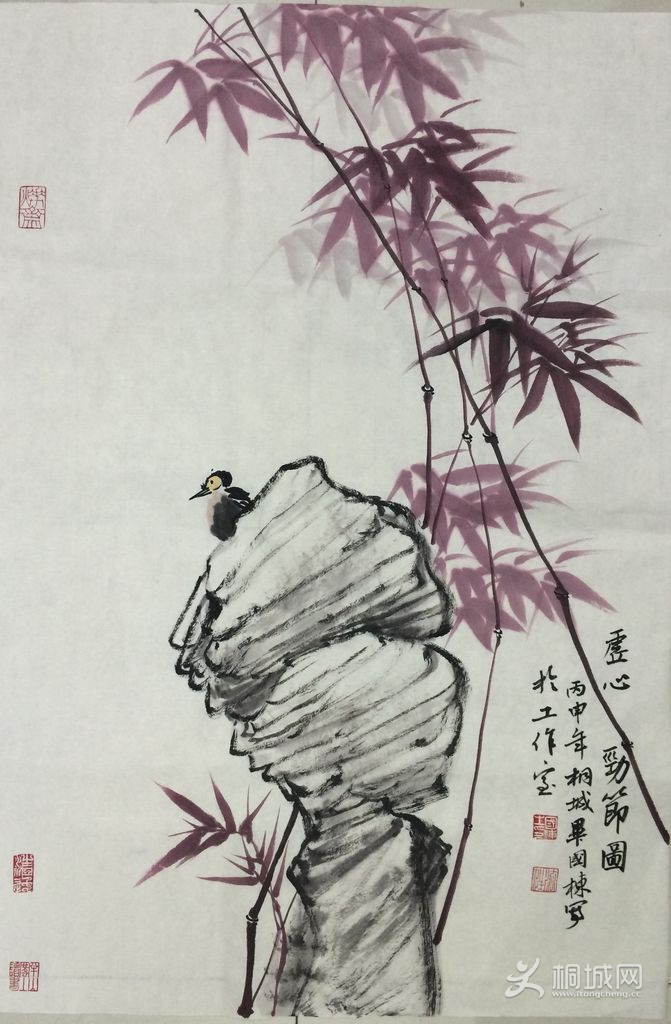 虚心 勁節圖
丙申年桐城畢國棟寫
於工作室
桐城网
www.itongcheng.cc